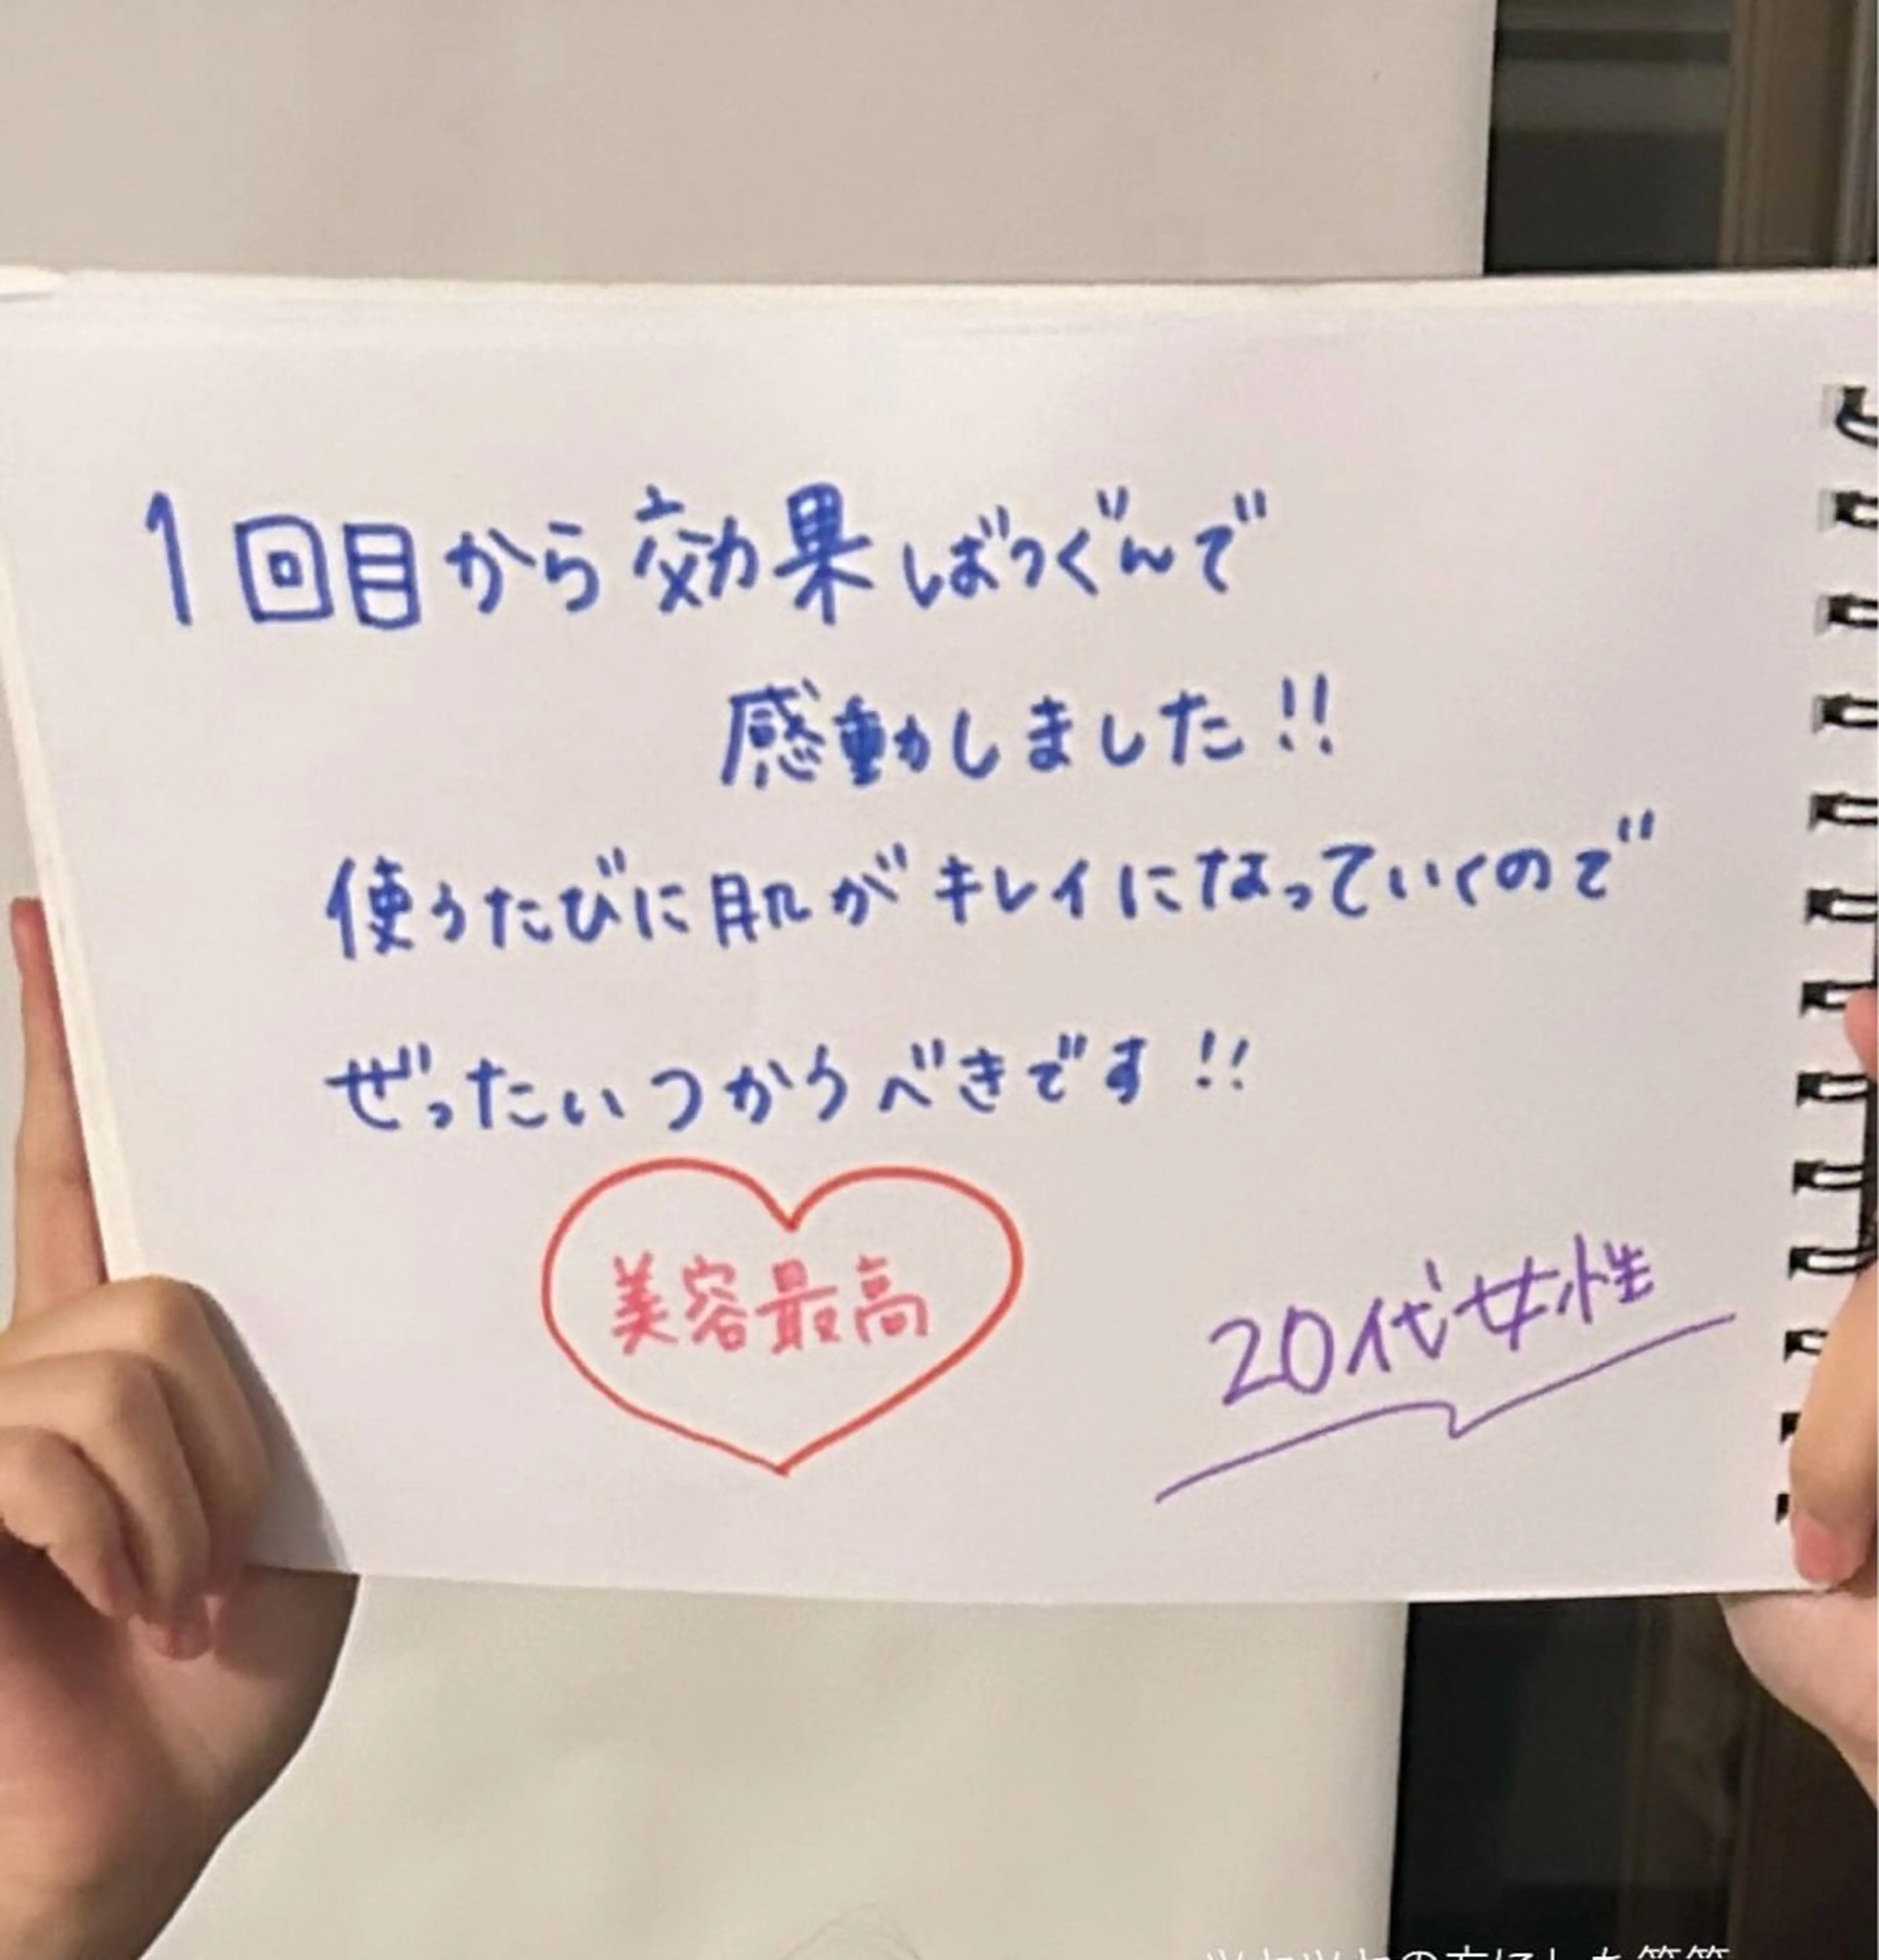 1回目から効果ばつぐんで
感動しました!!
使うたびに肌がキレイになっていくので
ぜったいつかうべきです!!
美容最高
20代女性